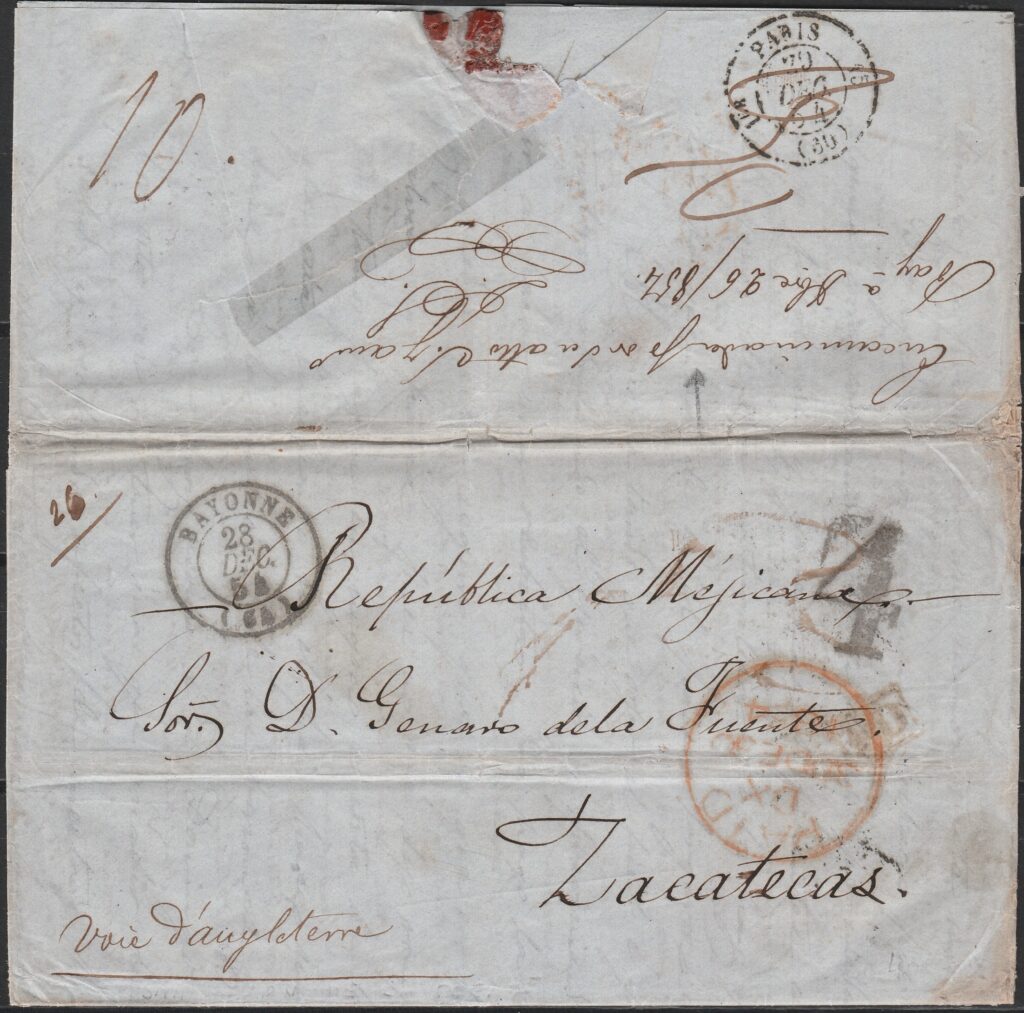 PARIS
DEC.
(60)
10.
Bay.ª Dbre 26/854.
Encaminada por su atto S.
26
BAYONNE
28
DEC.
54
(64)
República Méjicana.
4
Sor. D. Genaro dela Fuente.
PAID
Zacatecas.
voie d'angleterre